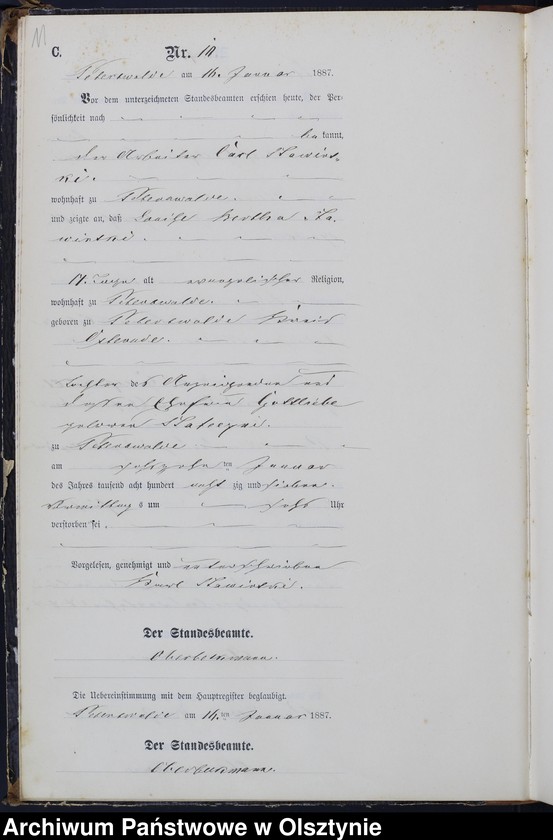 11
C. Nr. 10
Peterswalde am 16. Januar 1887.
Vor dem unterzeichneten Standesbeamten erschien heute, der Per-
sönlichkeit nach
bekannt,
der Arbeiter Carl Stawins-
ki.
wohnhaft zu Peterswalde.
und zeigte an, daß Louise Bertha Sta-
winski.
17. Tage alt evangelischer Religion,
wohnhaft zu Peterswalde.
geboren zu Peterswalde Kreis
Osterode.
Tochter des Anzeigenden und
dessen Ehefrau Gottliebe
geborene
zu Peterswalde
am sechszehnten Januar
des Jahres tausend acht hundert achtzig und sieben
Vormittags um sechs Uhr
verstorben sei.
Vorgelesen, genehmigt und unterschrieben
Karl Stawinski.
Der Standesbeamte.
Die Uebereinstimmung mit dem Hauptregister beglaubigt.
Peterswalde am 16.ten Januar 1887.
Der Standesbeamte.
Archiwum Państwowe w Olsztynie